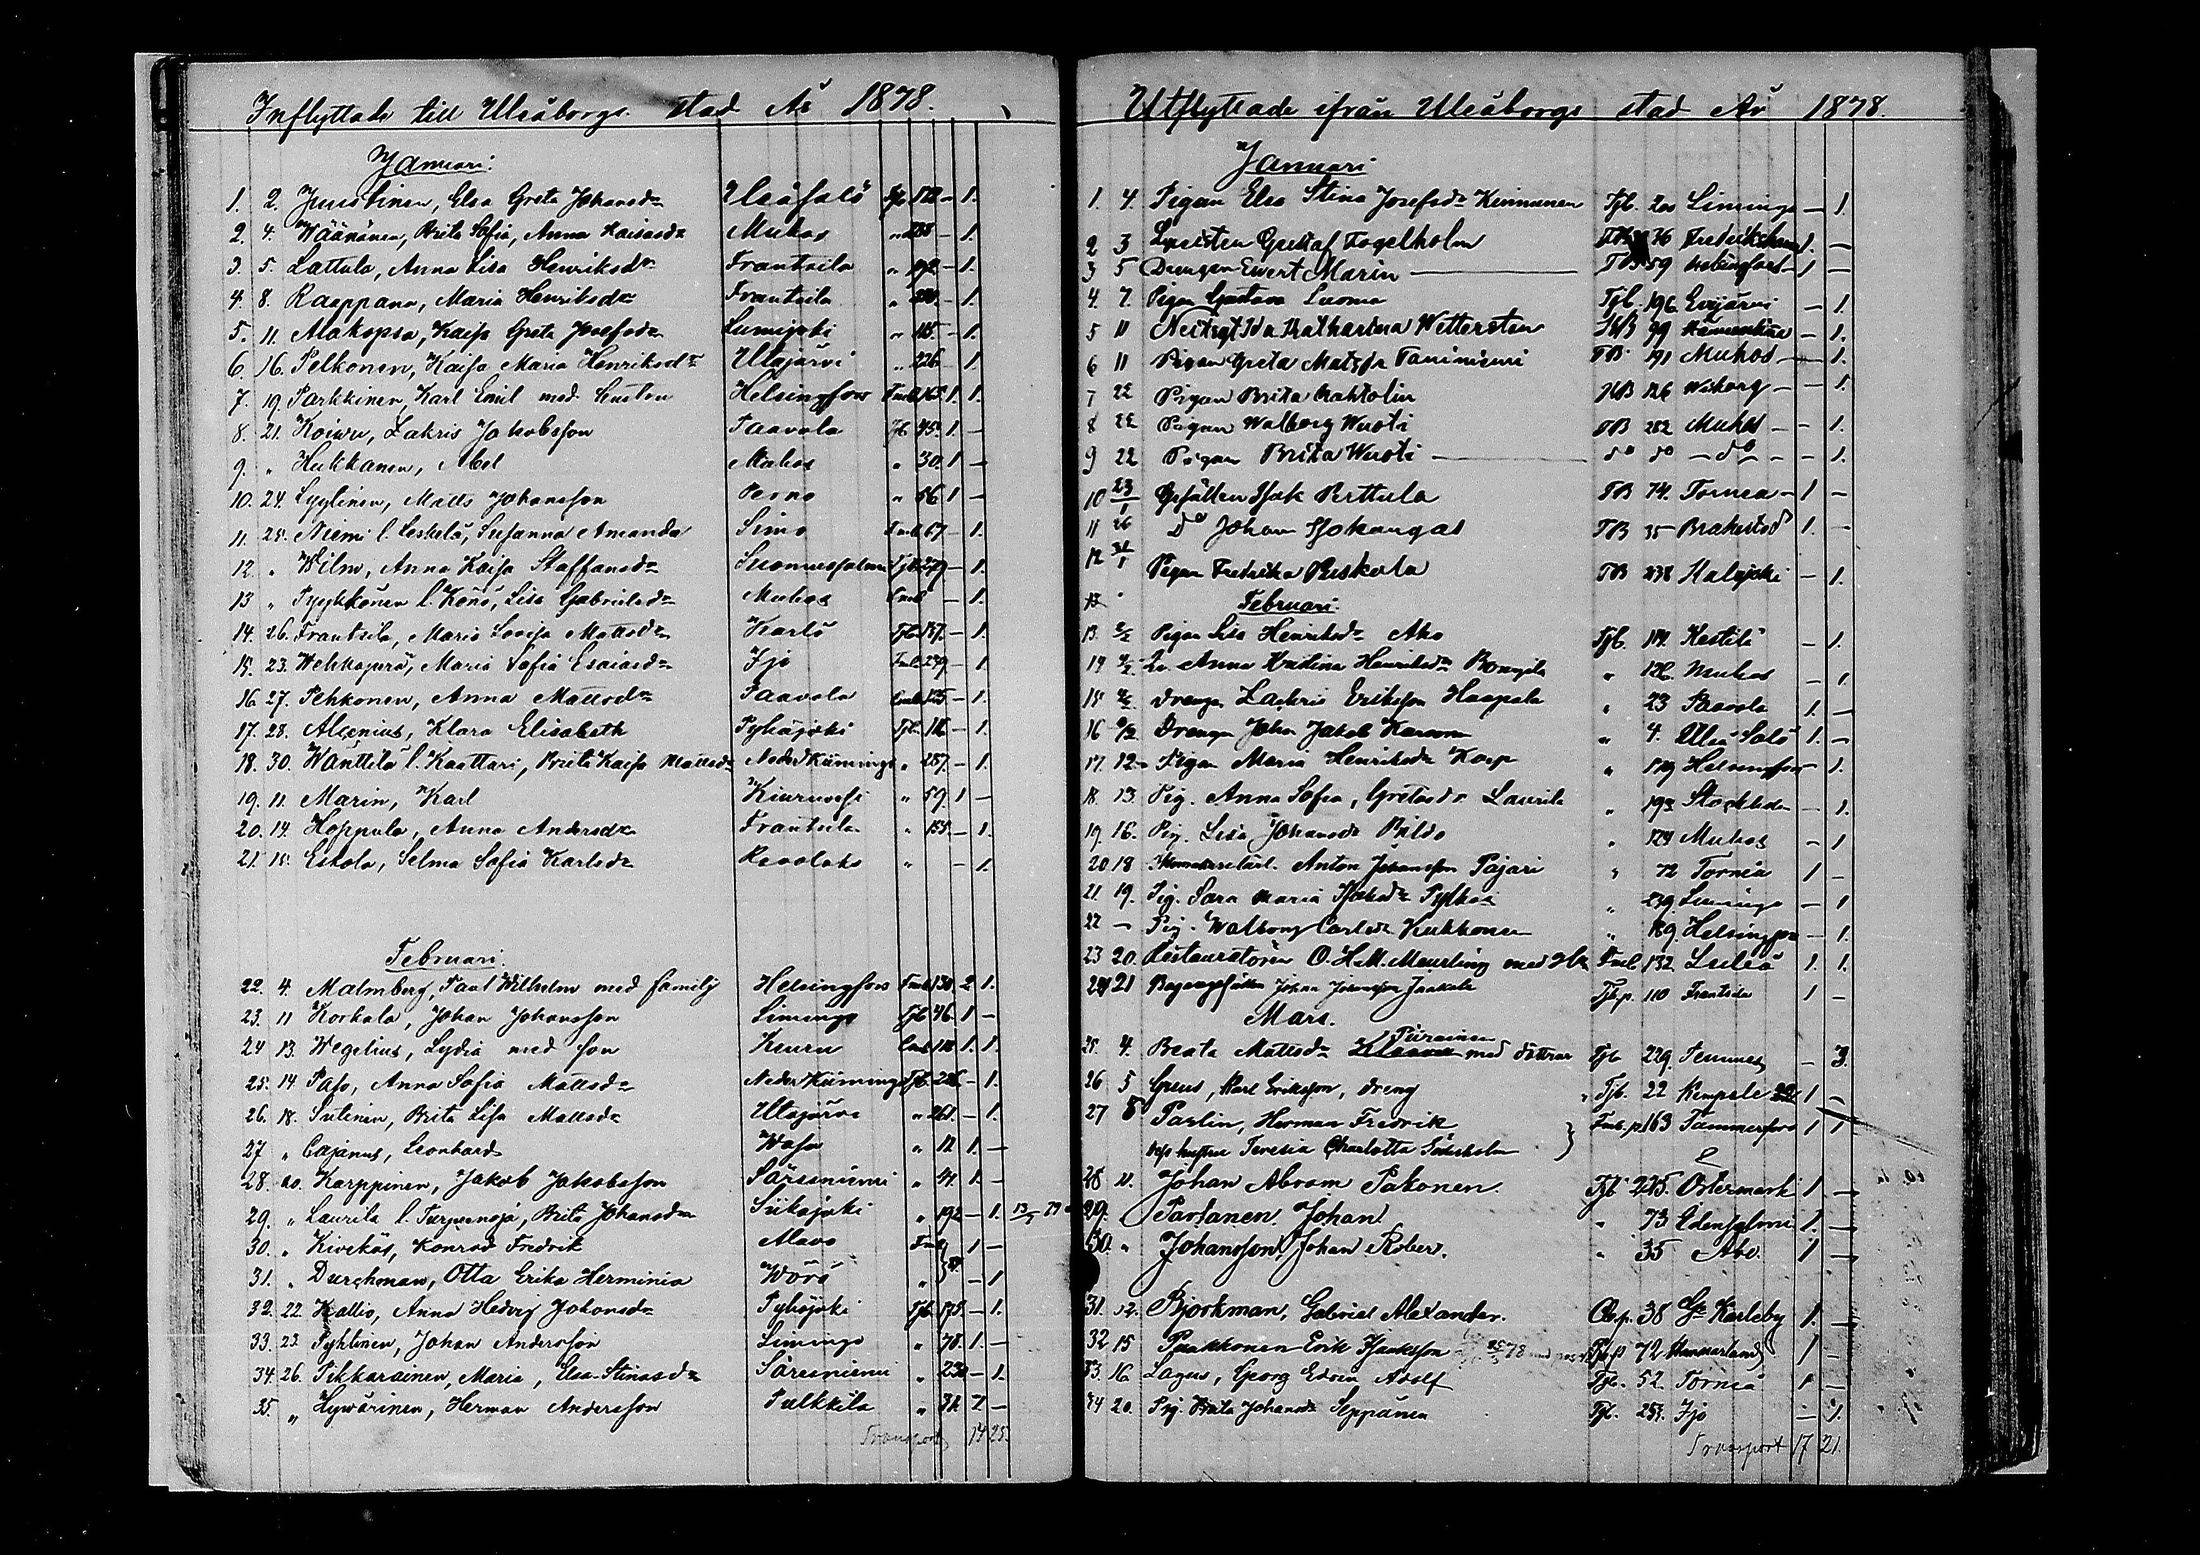 Inflyttade till Uleåborgs stad År 1878.
Januari.
1. 2. Juustinen, Elsa Greta Johansdr Uleåsalo — 1.
2. 4. Väänänen, Brita Sofia, Anna Kaisasdr Muhos — 1.
3. 5. Lattula, Anna Lisa Henriksdr Frantsila " 192 — 1.
4. 8. Raappana, Maria Henriksdr Frantsila " — 1.
5. 11. Alakopsa, Kaisa Greta Josefsdr Lumijoki " — 1.
6. 16. Pelkonen, Kaisa Maria Henriksdr Utajärvi " 226 — 1.
7. 19. Parkkinen, Karl Emil med hustru Helsingfors 165 1. 1.
8. 21. Koivu, Zakris Jakobsson Paavola 45 1. —
9. " Hukkanen, Abel Muhos " 30. 1 —
10. 24. Lyytinen, Matts Johansson Perno " 56 1 —
11. 25. Niemi l. Leskelä, Susanna Amanda Simo 67 — 1.
12. " Wilm, Anna Kaisa Staffansdr Suomussalmi 279 — 1.
13 " Pyykkönen l. Kono, Lisa Gabrielsdr Muhos — 1.
14. 26. Frantsila, Maria Lovisa Mattsdr Karlö Tjb 157. — 1.
15. 23. Wehkaperä, Maria Sofia Esaiasdr Ijo 239 — 1.
16 27. Pehkonen, Anna Mattsdr Paavola 125 — 1.
17. 28. Alcenius, Klara Elisabeth Pyhäjoki Tjb. 116 — 1.
18. 30. Wänttilä l. Kaattari, Brita Kaisa Mattsdr Nederkiiminge " 257. — 1.
19. 11. Marin, Karl Kiuruvesi " 59. 1 —
20. 14. Hoppula, Anna Andersdr Frantsila " 155. — 1.
21. 15. Eskola, Selma Sofia Karlsdr Revolaks " — 1.
Februari.
22. 4. Malmberg, Paul Wilhelm med familj Helsingfors 130 2 1.
23. 11 Korkala, Johan Johansson Limingo Tjb 46. 1 —
24 13. Wegelius, Lydia med son Keuru 1. 1.
25. 14 Paso, Anna Sofia Mattsdr Nederkiiminge Tjb. 226. — 1.
26. 18. Sutinen, Brita Lisa Mattsdr Utajärvi " 261. — 1.
27 " Cajanus, Leonhard Wasa " 12 1. —
28. 20. Karppinen, Jakob Jakobsson Säresniemi " 41. 1. —
29. " Laurila l. Turpeenoja, Brita Johansdr Siikajoki " 192 — 1.
30. " Kivekäs, Konrad Fredrik Alavo 1 —
31. " Durchman, Otta Erika Herminia Wörå " — 1
32. 22. Kallio, Anna Hedvig Johansdr Pyhäjoki Tjb. 175 — 1.
33. 23. Pyhtinen, Johan Andersson Limingo " 78. 1. —
34. 26. Pikkarainen, Maria, Elsa-Stinasdr Säresniemi " 230 — 1.
35. " Hyvärinen, Herman Andersson Pulkkila " 1 —
Transport 14 25.
Utflyttade ifrån Uleåborgs stad År 1878.
Januari
1. 4. Pigan Elsa Stina Josefsdr Kinnunen Tjb. 200 Limingo — 1.
2 3 Gustaf Fogelholm 36 Fredrikshamn 1. —
3 5 Drengen Evert Marin — TB 59 Helsingfors — 1 —
4. 7. Pigan Gustava Luoma Tjb. 196. Evijärvi — 1.
5 11 Ida Katharina Wettersten 99 — 1.
6 11 Pigan Greta Matsdr Tanimieni TB 191 Muhos — 1.
7 22 Pigan Brita Mahtolin TB 126 Wiborg — — 1.
8 22 Pigan Walborg Wuoti TB 282 Muhos — — 1.
9 22 Pigan Brita Wuoti — do do — do — — 1.
10 23/1 Gesällen Isak Perttula TB 74. Torneå — 1 —
11 26 do Johan Isokangas TB 35 Brahestad 1. —
12 31/1 Pigan Fredrika Peskola TB 238 Kalajoki — 1.
13
Februari.
13. 2/2 Pigan Lisa Henriksdr Aho Tjb. Kestilä — 1.
14 4/2 Anna Kristina Henriksdr " Muhos — 1
15 Drengen Zachris Eriksson Haapala " 23 Paavola 1. —
16 Drengen Johan Jakob " 4. Uleå Salo 1. —
17. 12. Pigan Maria Henriksdr Karp " 119 Helsingfors — 1.
18. 13. Pig. Anna Sofia, Gretasdr Laurila " 193 Stockholm — 1.
19. 16. Pig. Lisa Johansdr " 129 Muhos — 1
20 18 Anton Johansson Pajari " 72 Torneå 1 —
21. 19. Pig. Sara Maria Isaksdr " 239. Limingo — 1
22 — Pig. Walborg Carlsdr Kukkonen " 189. Helsingfors — 1.
23 20. Restauratören O. H. M. Meurling med Hu 132. Luleå 1. 1.
24 21 Bagaregesällen Johan Johansson Jaakola Tjb.p. 110 Frantsila 1 —
Mars.
25. 4. Beata Mattsdr Piirainen med döttrar Tjb 229. Temmes — 3.
26 5 Greus, Karl Eriksson, dreng " Tjb. 22 Kempele 1 —
27 8 Parlin, Herman Fredrik
dess hustru Teresia Charlotta Söderholm } 163 Tammerfors 1 1
28 11. Johan Abram Pakonen. Tjb. 225. Östermark 1. —
29. Partanen, Johan " 73 Idensalmi 1. —
30. " Johansson, Johan Robert. " 35 Åbo. 1 —
31. 12. Björkman, Gabriel Alexander. 38 Gla Karleby 1. —
32 15 Paakkonen Erik Isaksson 72 Hammarland 1 —
33. 16 Lagus, Georg Edvin Adolf Tjb. 52. Torneå 1 —
34 20. Pig. Brita Johansdr Seppänen Tjb. 251. Ijo — 1.
Transport 17 21.